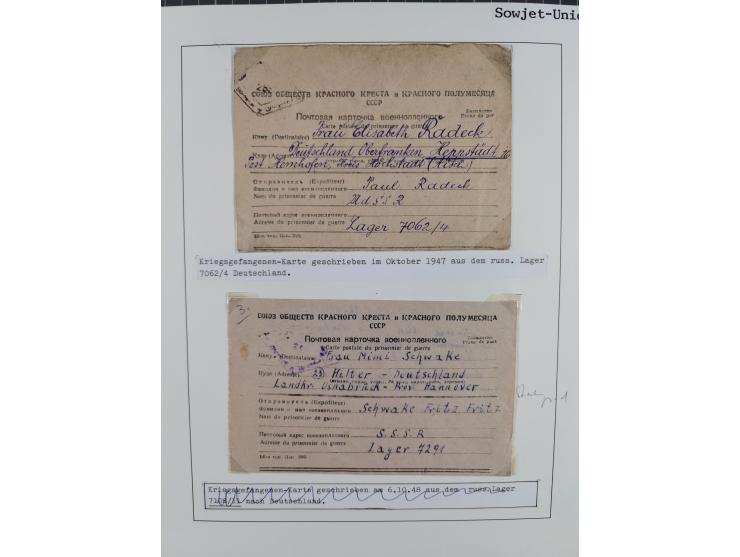 Sowjet-Unio
СОЮЗ ОБЩЕСТВ КРАСНОГО КРЕСТА и КРАСНОГО ПОЛУМЕСЯЦА
СССР
Почтовая карточка военнопленного
Carte postale du prisonnier de guerre
Бесплатно
Franc de port
Кому (Destinataire) Frau Elisabeth Radeck
Куда (Adresse) Deutschland Oberfranken Heppstädt
Post Hemhofen, Kreis Höchstadt (Aisch)
Отправитель (Expéditeur)
Фамилия и имя военнопленного Paul Radeck
Nom du prisonnier de guerre
UdSSR
Почтовый адрес военнопленного
Adresse du prisonnier de guerre Lager 7062/4
Kriegsgefangenen-Karte geschrieben im Oktober 1947 aus dem russ. Lager
7062/4 Deutschland.
3.
СОЮЗ ОБЩЕСТВ КРАСНОГО КРЕСТА и КРАСНОГО ПОЛУМЕСЯЦА
СССР
Почтовая карточка военнопленного
Carte postale du prisonnier de guerre
Бесплатно
Franc de port
Кому (Destinataire) Frau Mimi Schwake
Куда (Adresse) 23 Hilter - Deutschland
Landkr. Osnabrück - Prov. Hannover
Отправитель (Expéditeur)
Фамилия и имя военнопленного Schwake Fritz Fritz
Nom du prisonnier de guerre
Почтовый адрес военнопленного S.S.S.R
Adresse du prisonnier de guerre
Lager 7291
Kriegsgefangenen-Karte geschrieben am 6.10.48 aus dem russ.Lager
nach Deutschland.